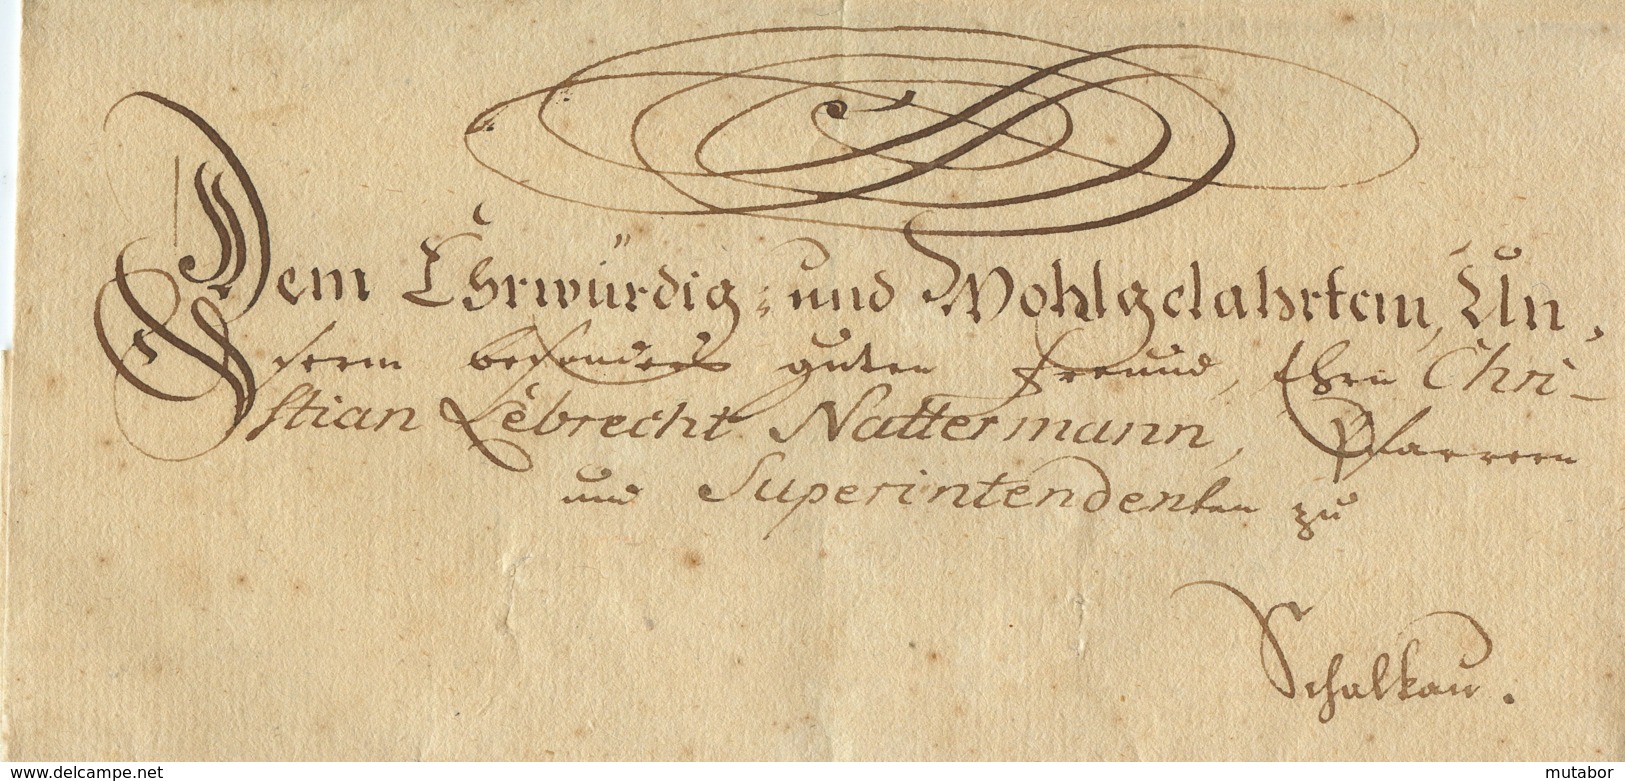 Dem Ehrwürdig- und Wohlgelahrtem, Un-
serm besonders guten Freund, Ehrn Chri-
stian Lebrecht Nattermann, Pfarrern
und Superintendenten zu
Schalkau.
www.delcampe.net
mutabor